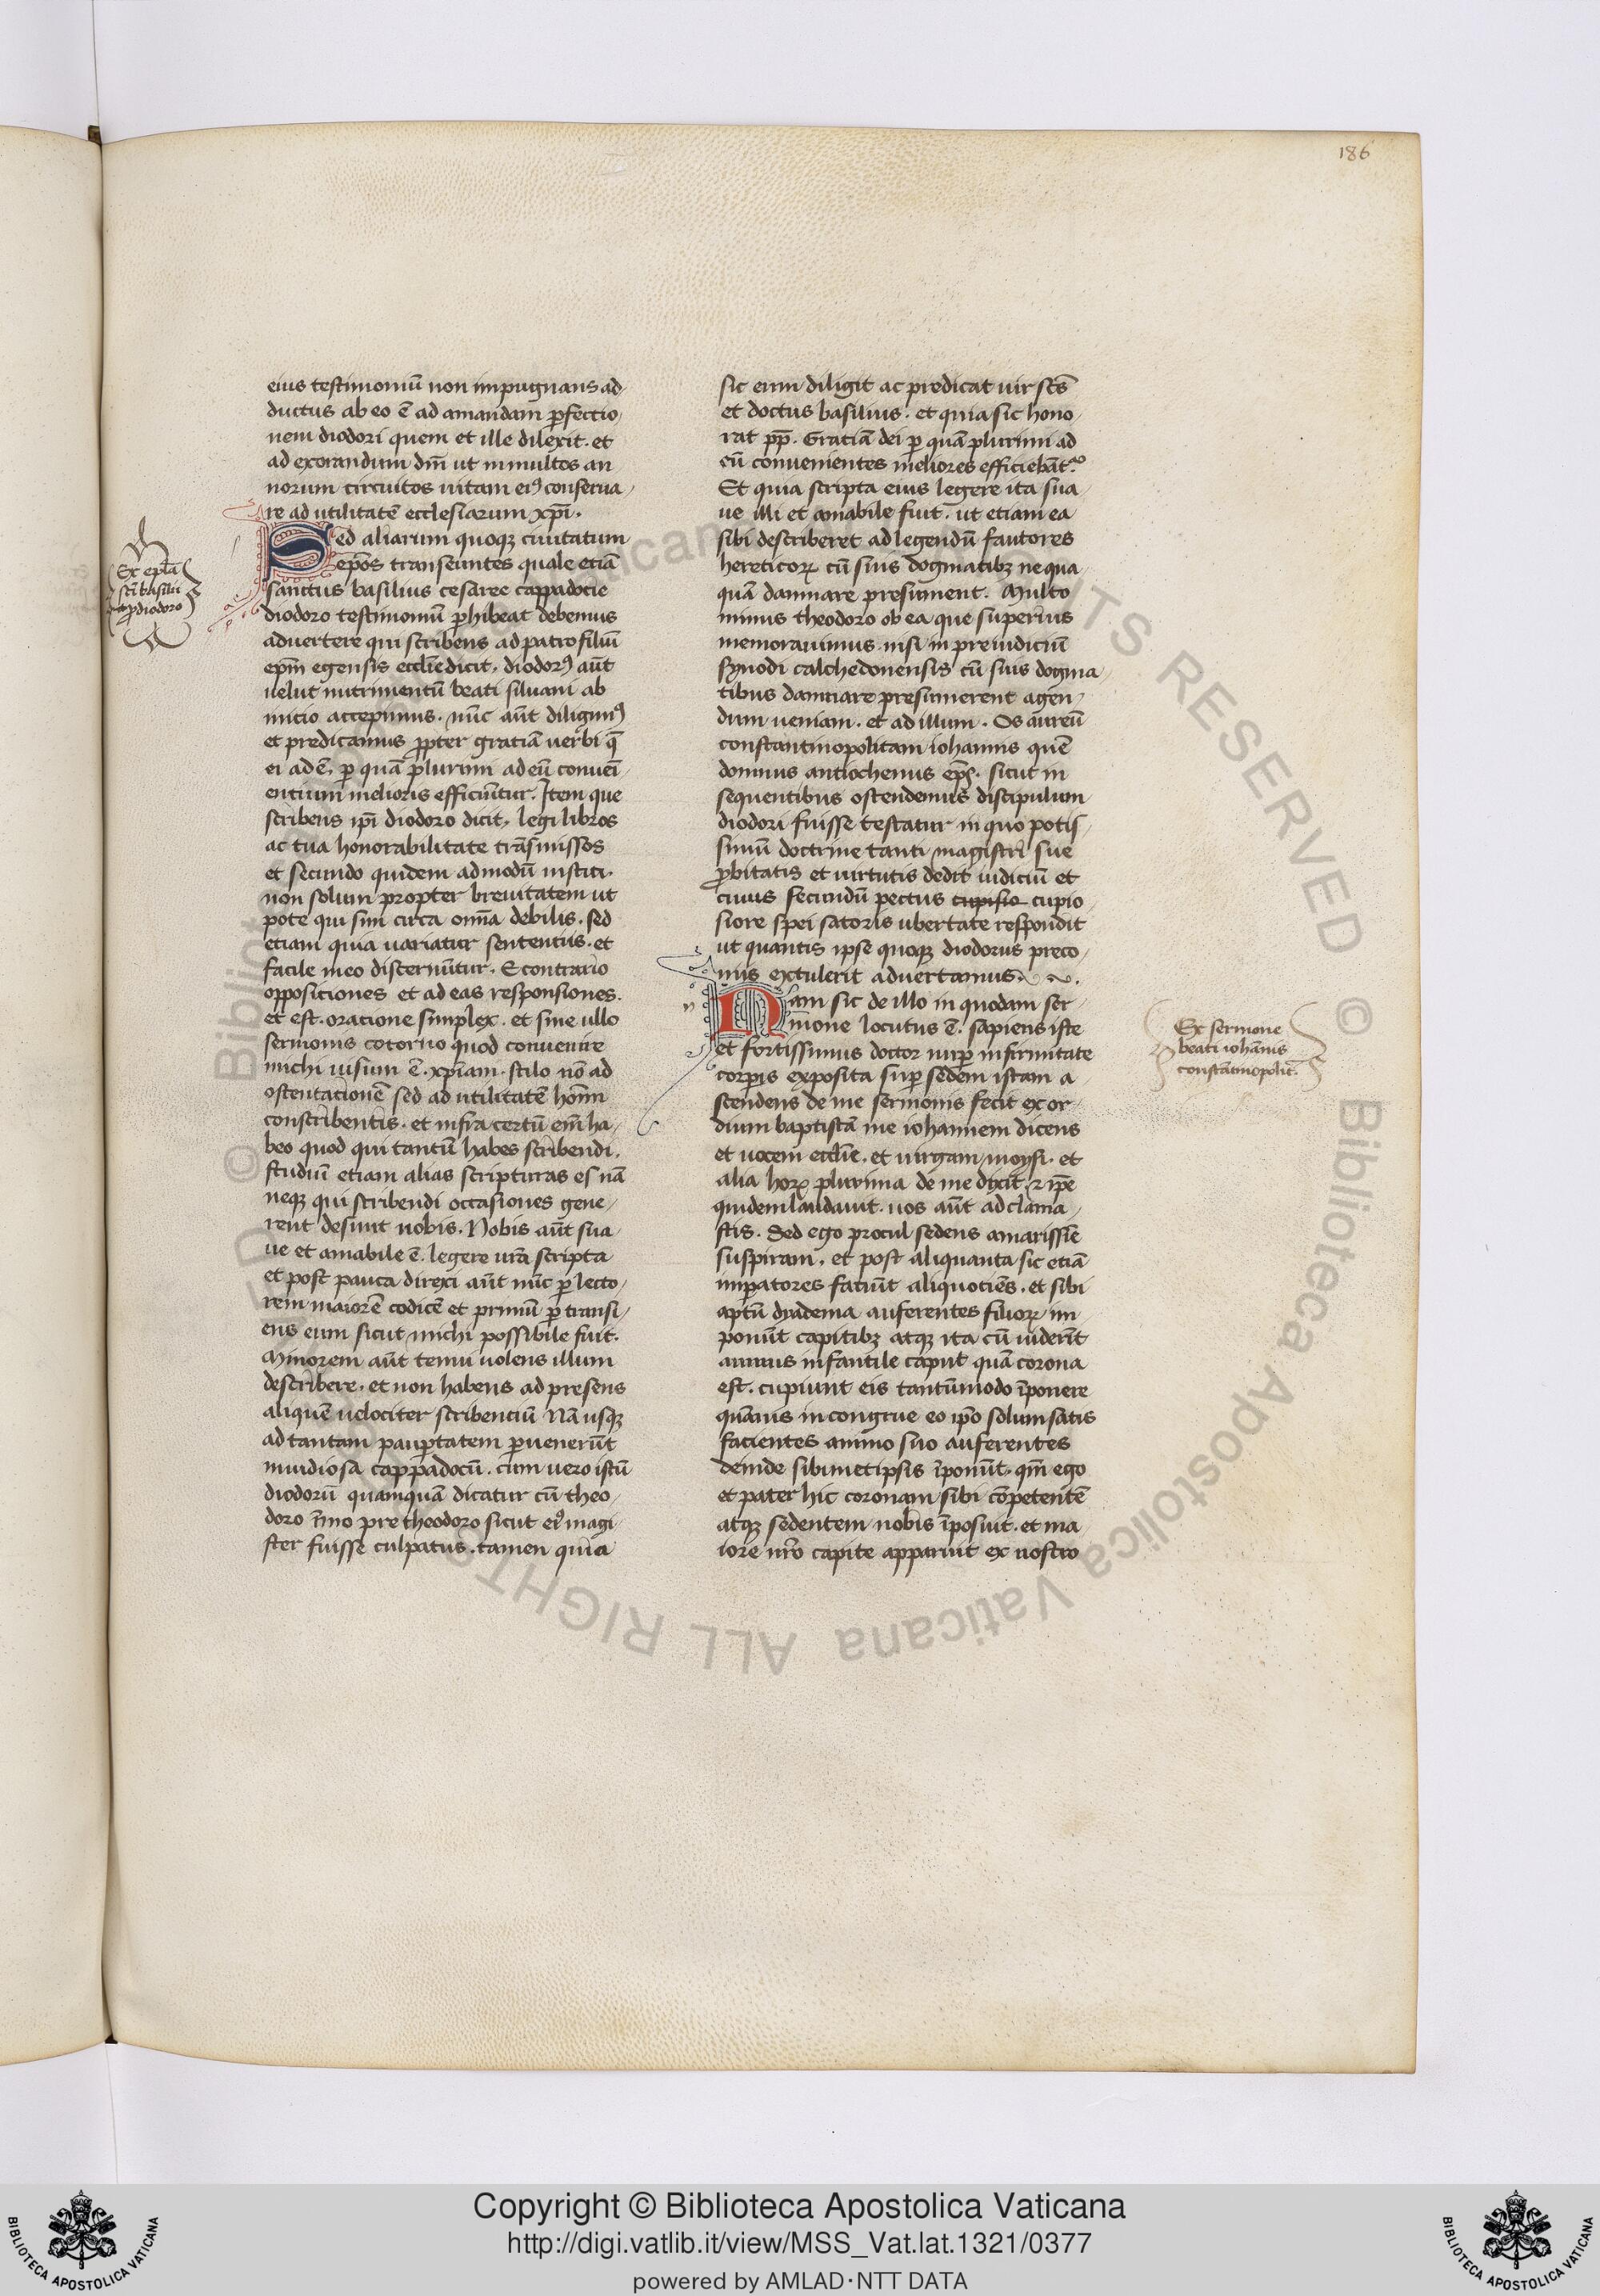 186
eius testimoniū non impugnans ad
ductus ab eo ē ad amandam ꝑfectio
nem diodori quem et ille dilexit. et
ad exorandum dm̄ ut in multos an
norum circuitos uitam eiꝰ conserua
re ad utilitatē ecclesiarum xp̄i.
Sed aliarum quoqꝫ ciuitatum
ep̄os transeuntes quale etiā
sanctus basilius cesaree cappadocie
diodoro testimoniū ꝓhibeat debemus
aduertere qui scribens ad patrofiliū
ep̄m egensis eccl̄ie dicit. diodorꝰ aūt
uelut nutrimentū beati siluani ab
initio accepimus. nūc aūt diligimꝰ
et predicamus ꝓpter gratiā uerbi q̄
ei adē. ꝑ quā plurimi ad eū conueī
entium melioris efficiūtur. Item que
scribens ip̄i diodoro dicit. legi libros
ac tua honorabilitate trāsmissos
et secundo quidem admodū institi.
non solum propter breuitatem ut
pote qui sim circa om̄a debilis. sed
etiam quia uariatur sententiis. et
facile meo discernūtur. E contrario
opposiciones et ad eas responsiones.
et est. oracione simplex. et sine ullo
sermonis cotorno quod conuenire
michi uisum ē. xp̄iam. stilo nō ad
ostentationē sed ad utilitatē hom̄
conscribentis. et infra certū em̄ ha
beo quod qui tantū habes scribendi.
studiū etiam alias scripturas es nā
neqꝫ qui scribendi occasiones gene
rent desunt nobis. Nobis aūt sua
ue et amabile ē. legere ur̄a scripta
et post pauca direxi aūt nūc ꝑ lecto
rem maiorē codicē et primū ꝑ transi
ens eum sicut michi possibile fuit.
Minorem aūt tenui uolens illum
describere. et non habens ad presens
aliquē uelociter scribenciū Nā usqꝫ
ad tantam pauꝑtatem ꝑuenerūt
inuidiosa cappadocū. cum uero istū
diodorū quamquā dicatur cū theo
doro īmo pre theodoro sicut eiꝰ magi
ster fuisse culpatus. tamen quia
Ex ep̄la
sc̄i basilii
ꝓ diodoro
sic eum diligit ac predicat uir sc̄s
et doctus basilius. et quia sic hono
rat pp̄. Gratiā dei ꝑ quā plurimi ad
eū conuenientes meliores efficiebāt.
Et quia scripta eius legere ita sua
ue illi et amabile fuit. ut etiam ea
sibi describeret ad legendū fautores
hereticoꝝ cū suis dogmatibꝫ nequa
quā damnare presument. Multo
minus theodoro ob ea que superius
memorauimus. nisi in preiudiciū
synodi calchedonensis cū suis dogma
tibus damnare presumerent agen
dum ueniam. et ad illum. Os aureū
constantinopolitam iohannis quē
domnus antiochenus ep̄s. sicut in
sequentibus ostendemus discipulum
diodori fuisse testatur in quo potis
simū doctrine tanti magistri sue
ꝓbitatis et uirtutis dedit iudiciū et
cuius fecundū pectus cupisio cupio
siore spei satoris ubertate respondit
ut quantis ipse quoqꝫ diodorus preco
niis extulerit aduertamus.
Nam sic de illo in quodam ser
mone locutus ē. sapiens iste
et fortissimus doctor nuꝑ infirmitate
corꝑis exposita suꝑ sedem istam a
scendens de me sermonis fecit exor
dium baptistā me iohannem dicens
et uocem eccl̄ie. et uirgam moysi. et
alia hoꝝ plurima de me dixit. ⁊ ip̄e
quidem laudauit. uos aūt ad clama
stis. Sed ego procul sedens amarissīe
suspiram. et post aliquanta sic etiā
imꝑatores faciūt aliquociēs. et sibi
aptū dyadema auferentes filioꝝ im
ponūt capitibꝫ atqꝫ ita cū uiderīt
minus infantile caput quā corona
est. cupiunt eis tantūmodo īponere
quāuis incongrue eo ip̄o solum satis
facientes animo suo auferentes
deinde sibimetipsis īponūt. qm̄ ego
et pater hic coronam sibi cōpetentē
atqꝫ sedentem nobis īposuit. et ma
iore nr̄o capite apparuit ex nostro
Ex sermone
beati iohānis
constātinopolit̄.
© Biblioteca Apostolica Vaticana ALL RIGHTS RESERVED
Copyright © Biblioteca Apostolica Vaticana
http://digi.vatlib.it/view/MSS_Vat.lat.1321/0377
powered by AMLAD·NTT DATA
BIBLIOTECA APOSTOLICA VATICANA
BIBLIOTECA APOSTOLICA VATICANA